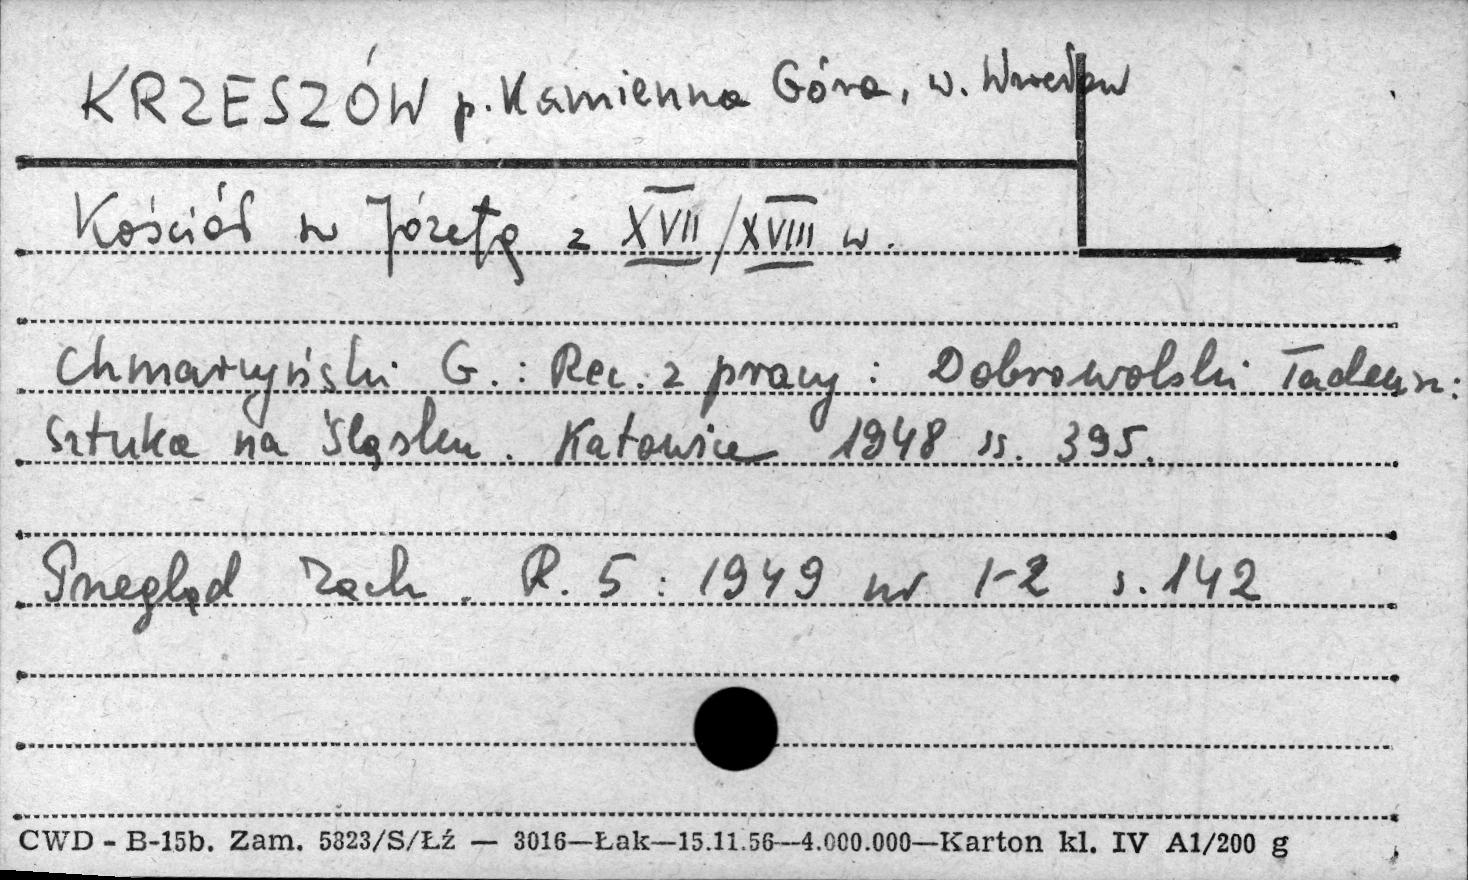 KRZESZÓW p. Kamienna Góra, w. Wrocław
Kościół św Józefa z XVII/XVIII w.
Chmarzyński G.: Rec. z pracy: Dobrowolski Tadeusz:
Sztuka na Śląsku. Katowice 1948 ss. 395.
Przegląd Zach. R. 5: 1949 nr 1-2 s. 142
CWD - B-15b. Zam. 5823/S/Łź — 3016—Łak—15.11.56—4.000.000—Karton kl. IV A1/200 g